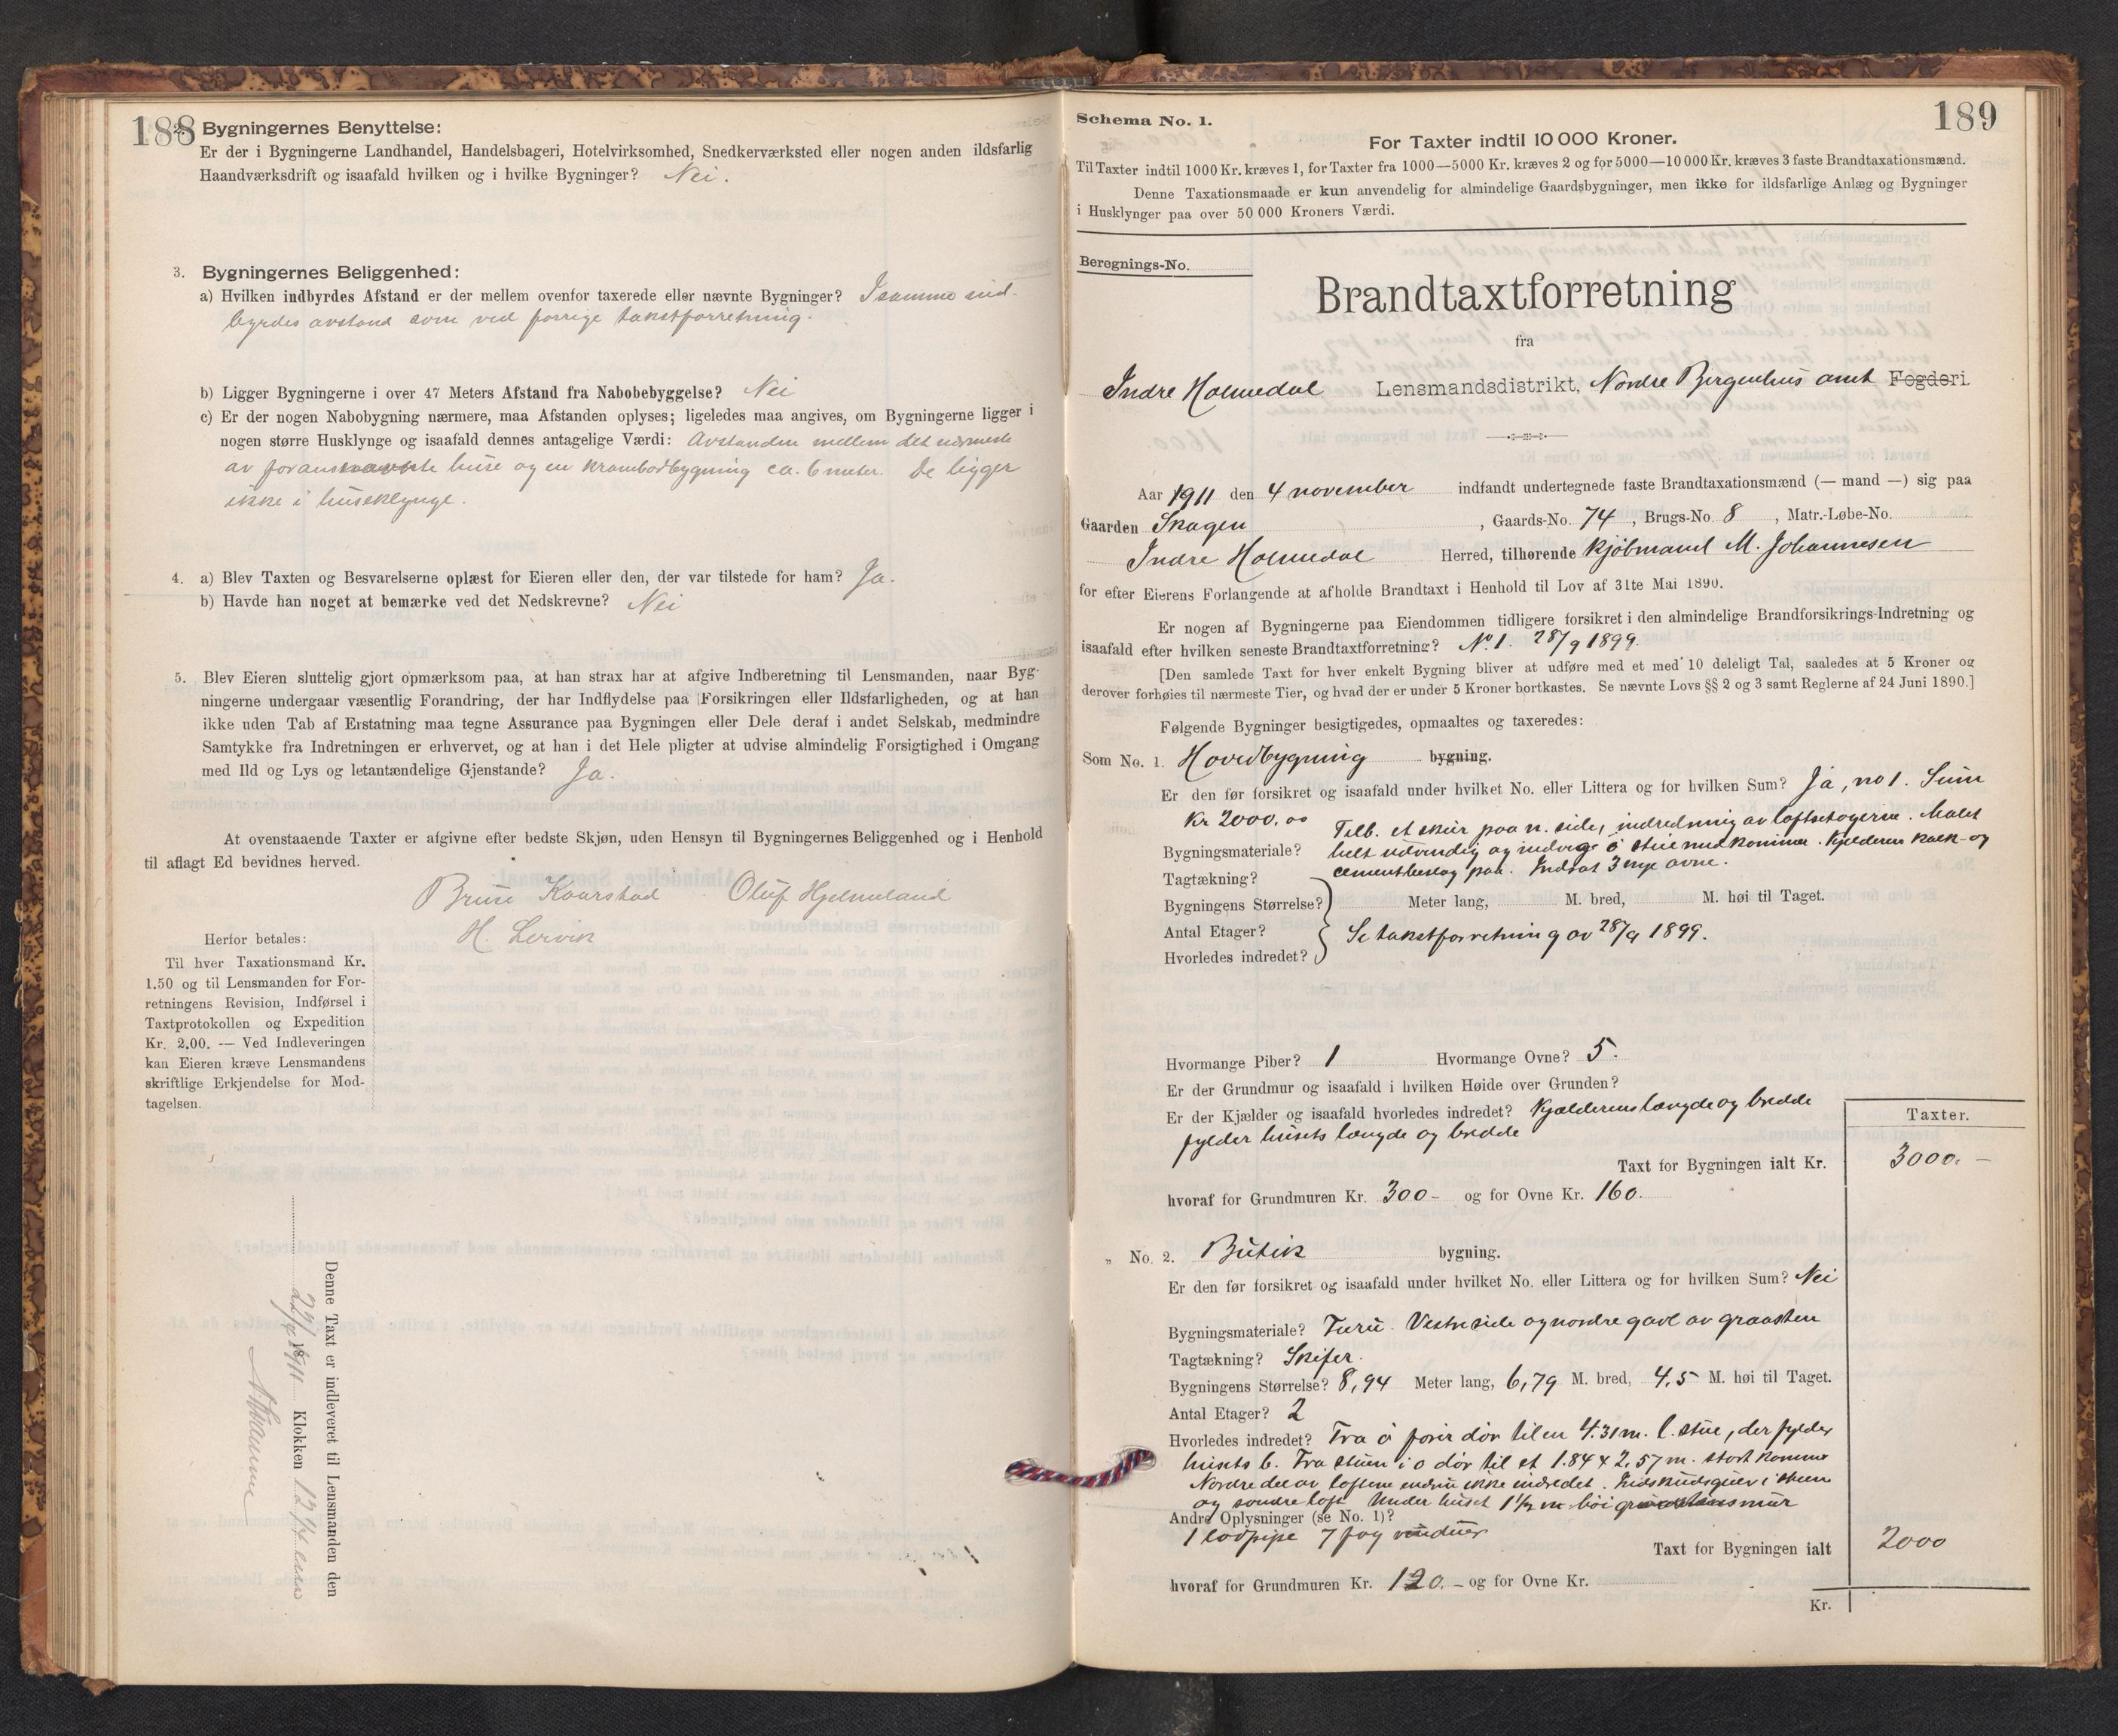 188
2. Bygningernes Benyttelse:
Er der i Bygningerne Landhandel, Handelsbageri, Hotelvirksomhed, Snedkerværksted eller nogen anden ildsfarlig
Haandværksdrift og isaafald hvilken og i hvilke Bygninger? Nei.
3. Bygningernes Beliggenhed:
a) Hvilken indbyrdes Afstand er der mellem ovenfor taxerede eller nævnte Bygninger? I samme ind-
byrdes avstand som ved forrige takstforretning.
b) Ligger Bygningerne i over 47 Meters Afstand fra Nabobebyggelse? Nei
c) Er der nogen Nabobygning nærmere, maa Afstanden oplyses; ligeledes maa angives, om Bygningerne ligger i
nogen større Husklynge og isaafald dennes antagelige Værdi: Avstanden mellem det nærmeste
av forannævnte huse og en krambodbygning ca. 6 meter. De ligger
ikke i huseklynge.
4. a) Blev Taxten og Besvarelserne oplæst for Eieren eller den, der var tilstede for ham? Ja.
b) Havde han noget at bemærke ved det Nedskrevne? Nei
5. Blev Eieren sluttelig gjort opmærksom paa, at han strax har at afgive Indberetning til Lensmanden, naar Byg-
ningerne undergaar væsentlig Forandring, der har Indflydelse paa Forsikringen eller Ildsfarligheden, og at han
ikke uden Tab af Erstatning maa tegne Assurance paa Bygningen eller Dele deraf i andet Selskab, medmindre
Samtykke fra Indretningen er erhvervet, og at han i det Hele pligter at udvise almindelig Forsigtighed i Omgang
med Ild og Lys og letantændelige Gjenstande? Ja.
At ovenstaaende Taxter er afgivne efter bedste Skjøn, uden Hensyn til Bygningernes Beliggenhed og i Henhold
til aflagt Ed bevidnes herved.
Brune Kaarstad Oluf Hjelmeland
H. Lervik
Herfor betales:
Til hver Taxationsmand Kr.
1.50 og til Lensmanden for For-
retningens Revision, Indførsel i
Taxtprotokollen og Expedition
Kr. 2,00. — Ved Indleveringen
kan Eieren kræve Lensmandens
skriftlige Erkjendelse for Mod-
tagelsen.
Denne Taxt er indleveret til Lensmanden den
22/9 1911 Klokken 12
189
Schema No. 1.
For Taxter indtil 10 000 Kroner.
Til Taxter indtil 1000 Kr. kræves 1, for Taxter fra 1000—5000 Kr. kræves 2 og for 5000—10 000 Kr. kræves 3 faste Brandtaxationsmænd.
Denne Taxationsmaade er kun anvendelig for almindelige Gaardsbygninger, men ikke for ildsfarlige Anlæg og Bygninger
i Husklynger paa over 50 000 Kroners Værdi.
Beregnings-No.
Brandtaxtforretning
fra
Indre Holmedal Lensmandsdistrikt, Nordre Bergenhus amt Fogderi.
Aar 1911 den 4 november indfandt undertegnede faste Brandtaxationsmænd (— mand —) sig paa
Gaarden Skagen, Gaards-No. 74, Brugs-No. 8, Matr.-Løbe-No.
Indre Holmedal Herred, tilhørende kjøbmand M. Johannesen
for efter Eierens Forlangende at afholde Brandtaxt i Henhold til Lov af 31te Mai 1890.
Er nogen af Bygningerne paa Eiendommen tidligere forsikret i den almindelige Brandforsikrings-Indretning og
isaafald efter hvilken seneste Brandtaxtforretning? No. 1. 28/9 1899.
[Den samlede Taxt for hver enkelt Bygning bliver at udføre med et med 10 deleligt Tal, saaledes at 5 Kroner og
derover forhøies til nærmeste Tier, og hvad der er under 5 Kroner bortkastes. Se nævnte Lovs §§ 2 og 3 samt Reglerne af 24 Juni 1890.]
Følgende Bygninger besigtigedes, opmaaltes og taxeredes:
Som No. 1. Hovedbygning bygning.
Er den før forsikret og isaafald under hvilket No. eller Littera og for hvilken Sum? Ja, no 1. Sum
Kr 2000.00
Tilb. et skur paa n. side, indredning av loftsetagerne. Malet
Bygningsmateriale? helt udvendig og indv. i stue med kammer. Kjelderen kalk- og
Tagtækning? cementbeslag paa. Indsat 3 nye ovne.
Bygningens Størrelse? Meter lang, M. bred, M. høi til Taget.
Antal Etager? Se takstforretning av 28/9 1899.
Hvorledes indredet?
Hvormange Piber? 1 Hvormange Ovne? 5.
Er der Grundmur og isaafald i hvilken Høide over Grunden?
Er der Kjælder og isaafald hvorledes indredet? Kjælderens længde og bredde
fylder husets længde og bredde
Taxter.
Taxt for Bygningen ialt Kr. 3000.—
hvoraf for Grundmuren Kr. 300- og for Ovne Kr. 160.
„ No. 2. Butik bygning.
Er den før forsikret og isaafald under hvilket No. eller Littera og for hvilken Sum? Nei
Bygningsmateriale? Furu. Vestre side og nordre gavl av graasten
Tagtækning? Skifer.
Bygningens Størrelse? 8,94 Meter lang, 6,79 M. bred, 4,5 M. høi til Taget.
Antal Etager? 2
Hvorledes indredet? Fra ø forer dør til en 4.31 m. l. stue, der fylder
husets b. Fra stuen i o dør til et 1.84 x 2,57 m. stort kammer
Nordre del av loftene endnu ikke indredet. Indskudsgulv i stuen
og søndre loft. Under huset 1½ m høi graastensmur
Andre Oplysninger (se No. 1)?
1 lodpipe 7 fag vinduer
Taxt for Bygningen ialt 2000
hvoraf for Grundmuren Kr. 120.- og for Ovne Kr.
Kr.